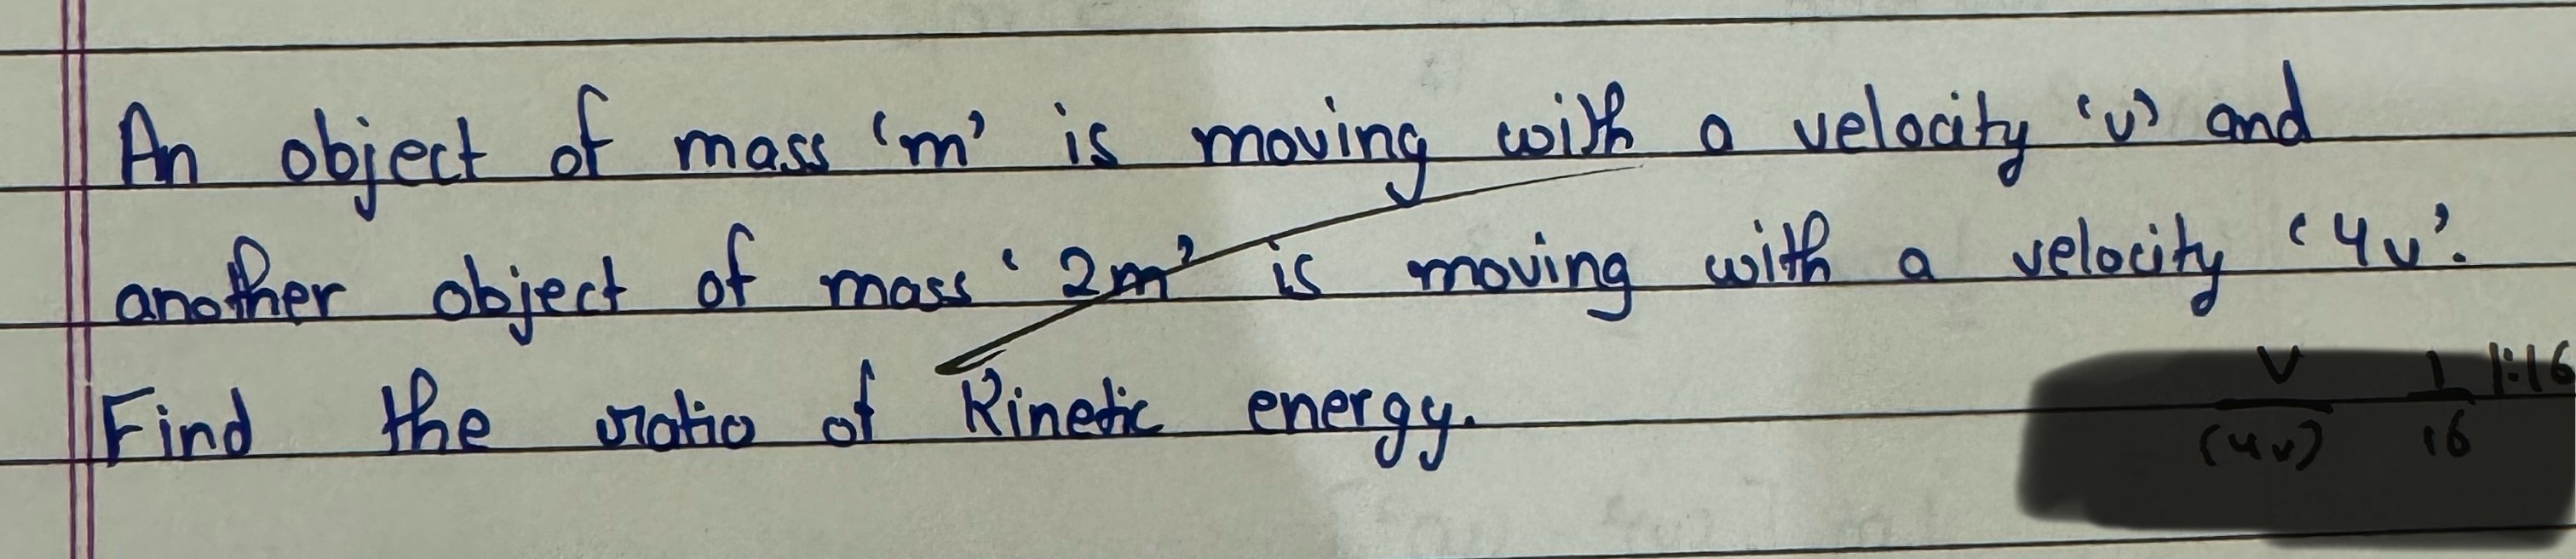 An object of mass 'm' is moving with a velocity 'v' and
another object of mass '2m' is moving with a velocity '4v'.
Find the ratio of Kinetic energy.
v 1 1:16
(4v) 16